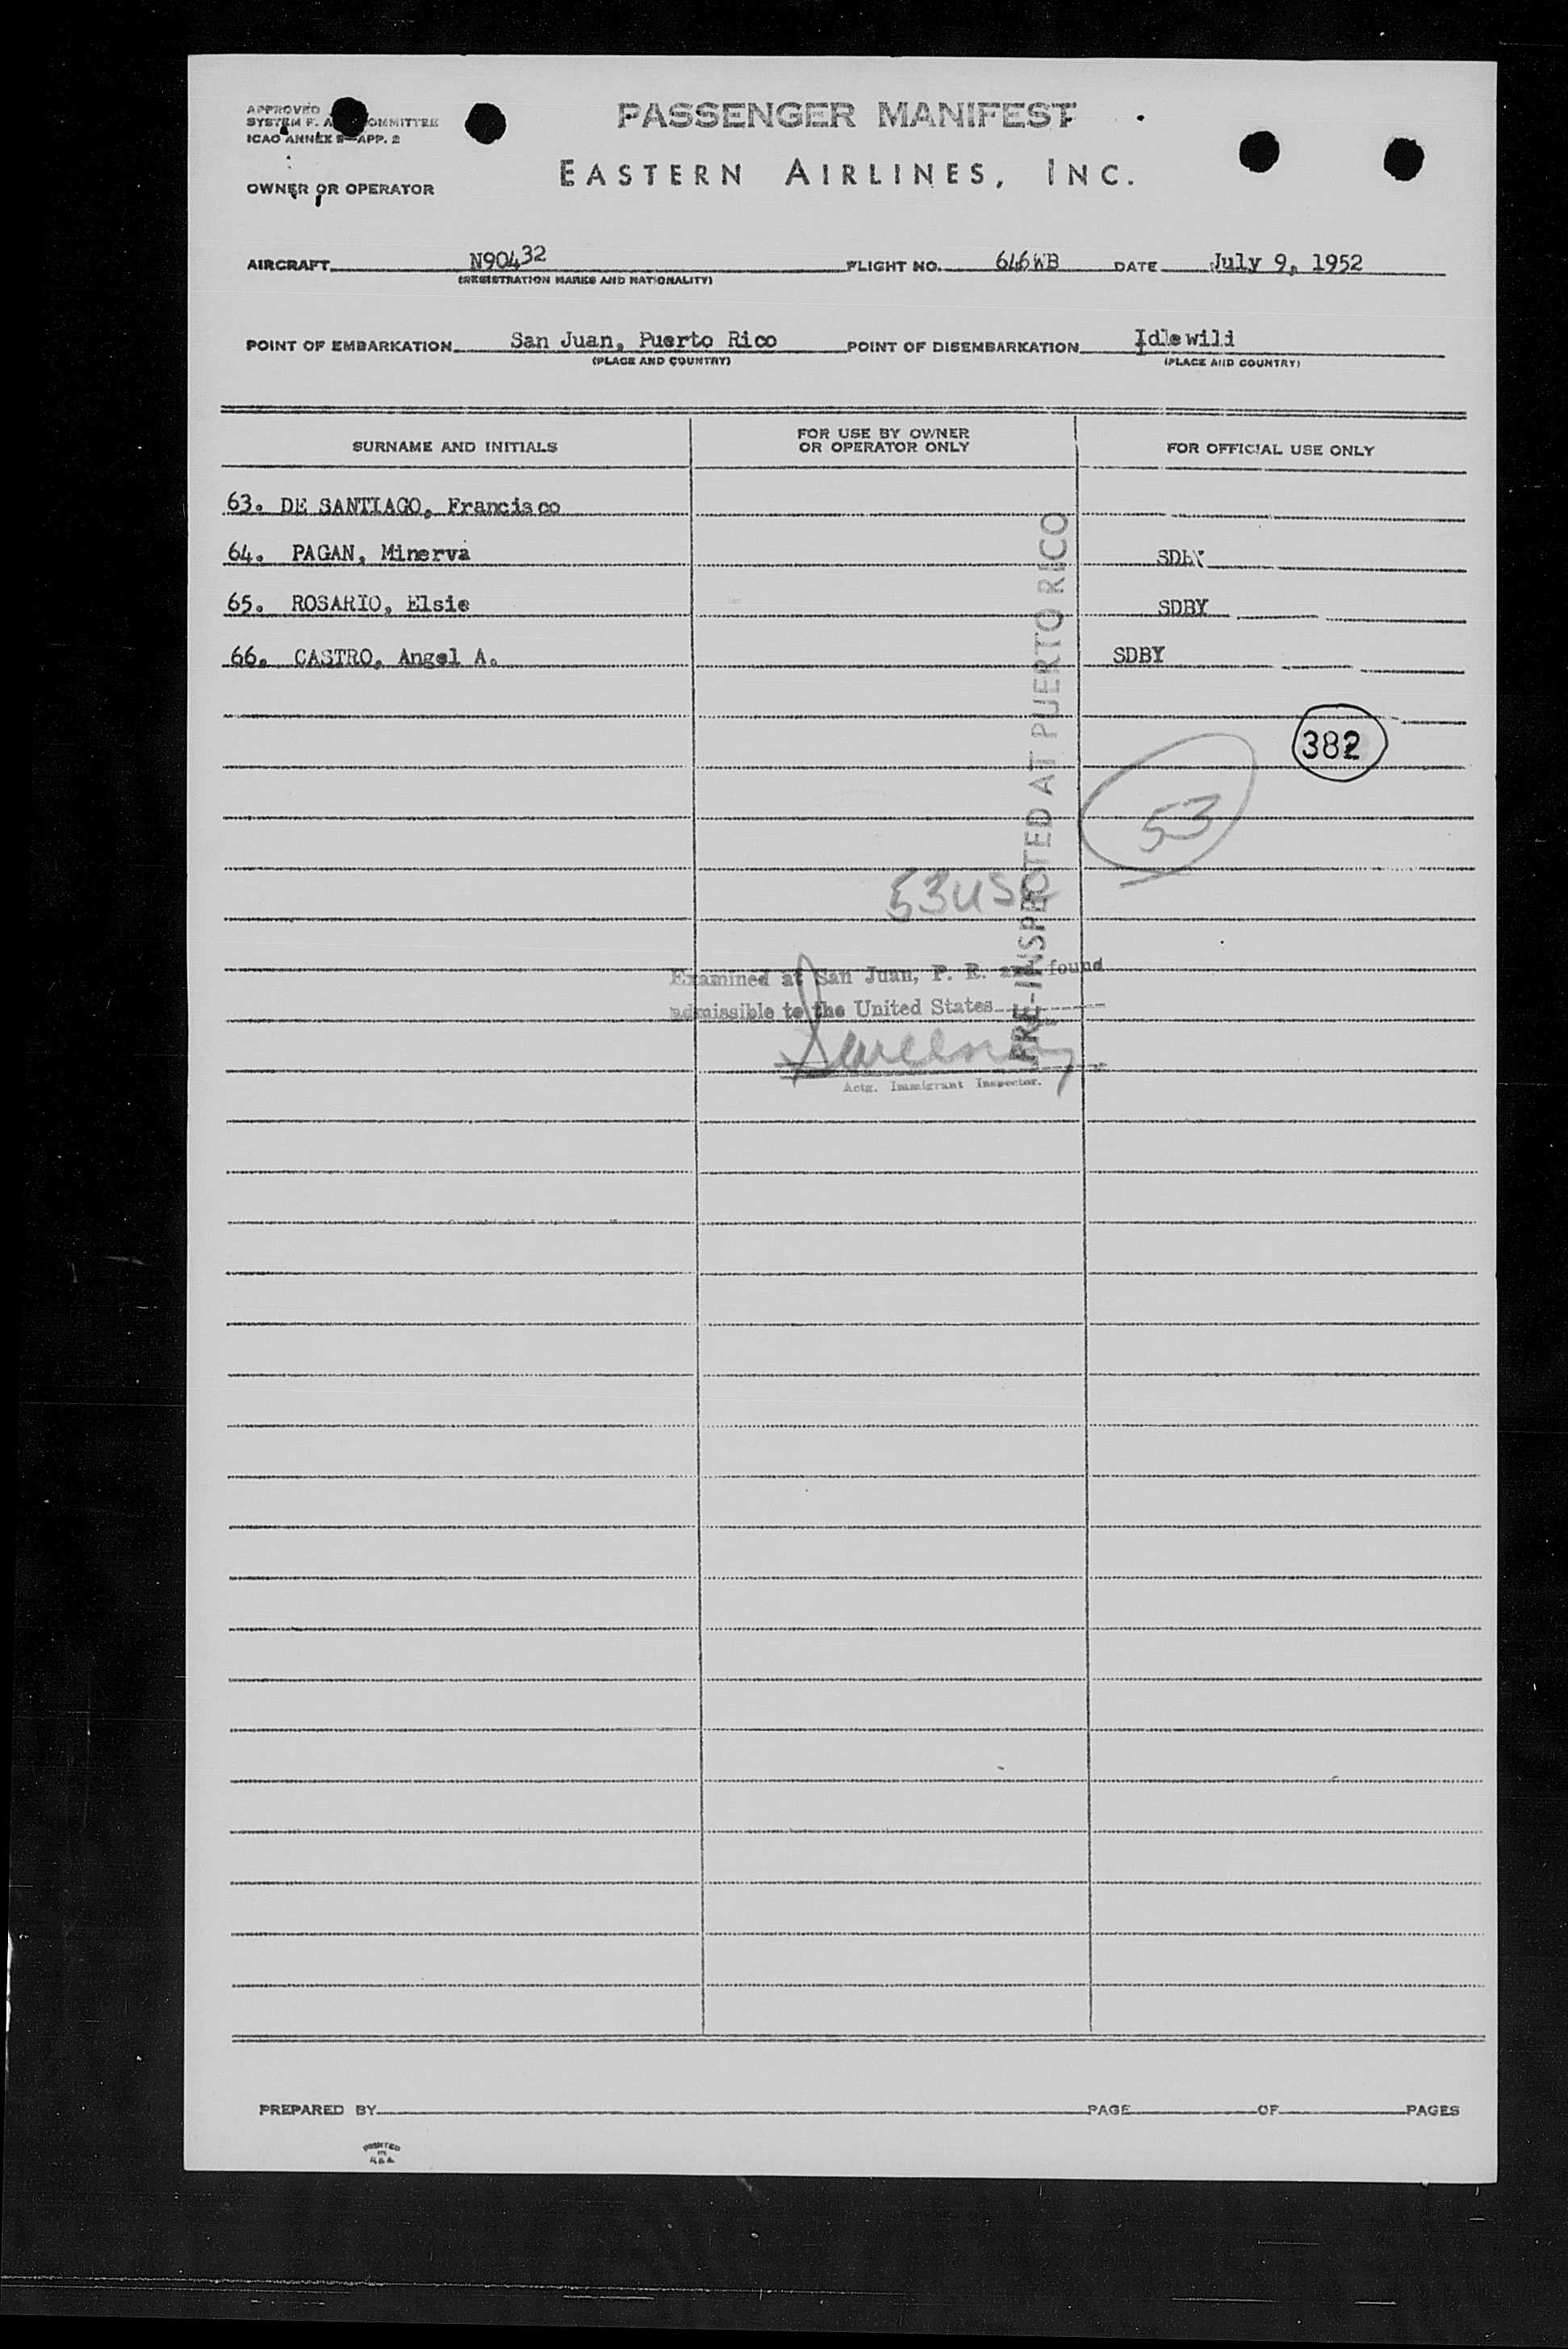 APPROVED
SYSTEM F. A. COMMITTEE
ICAO ANNEX 9—APP. 2
PASSENGER MANIFEST
EASTERN AIRLINES, INC.
OWNER OR OPERATOR
AIRCRAFT N90432 FLIGHT NO. 646WB DATE July 9, 1952
(REGISTRATION MARKS AND NATIONALITY)
POINT OF EMBARKATION San Juan, Puerto Rico POINT OF DISEMBARKATION Idlewild
(PLACE AND COUNTRY) (PLACE AND COUNTRY)
SURNAME AND INITIALS
FOR USE BY OWNER
OR OPERATOR ONLY
FOR OFFICIAL USE ONLY
63. DE SANTIAGO, Francisco
64. PAGAN, Minerva SDBY
65. ROSARIO, Elsie SDBY
66. CASTRO, Angel A. SDBY
382
53
53 USC
PRE-INSPECTED AT PUERTO RICO
Examined at San Juan, P. R. and found
admissible to the United States
Actg. Immigrant Inspector.
PREPARED BY PAGE OF PAGES
PRINTED
IN